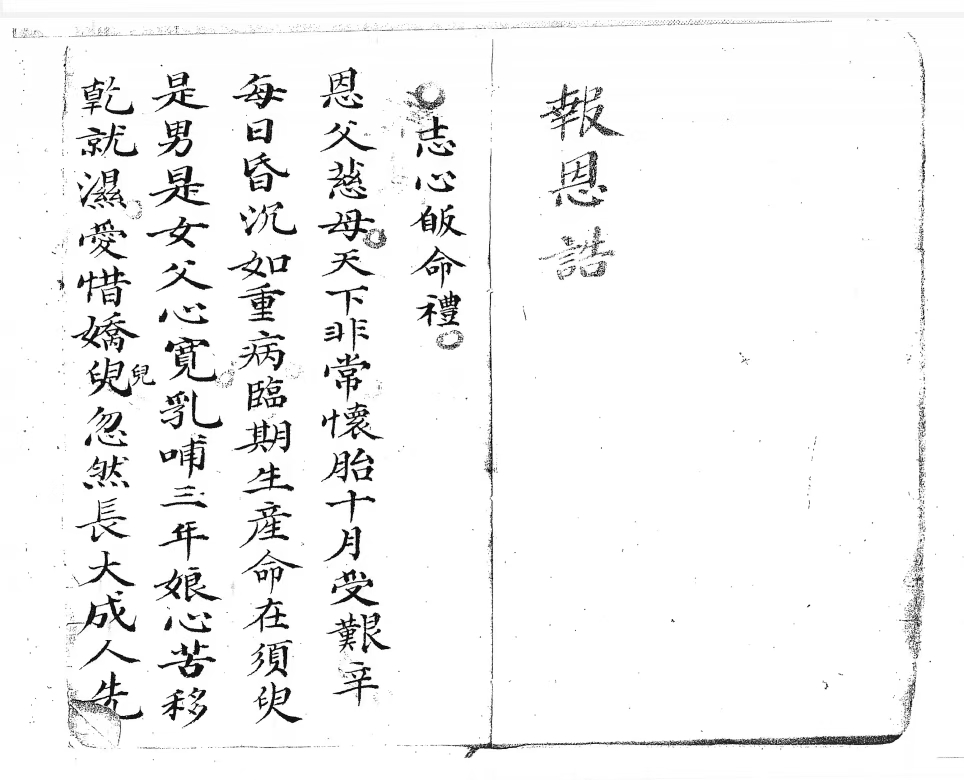 報恩誥
志心皈命禮
恩父慈母天下非常懷胎十月受艱辛
每日昏沉如重病臨期生產命在須臾
是男是女父心寬乳哺三年娘心苦移
乾就濕愛惜嬌兒忽然長大成人先